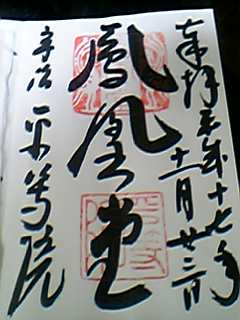 奉拝
平成十七年
十一月廿三日
鳳凰堂
宇治 平等院